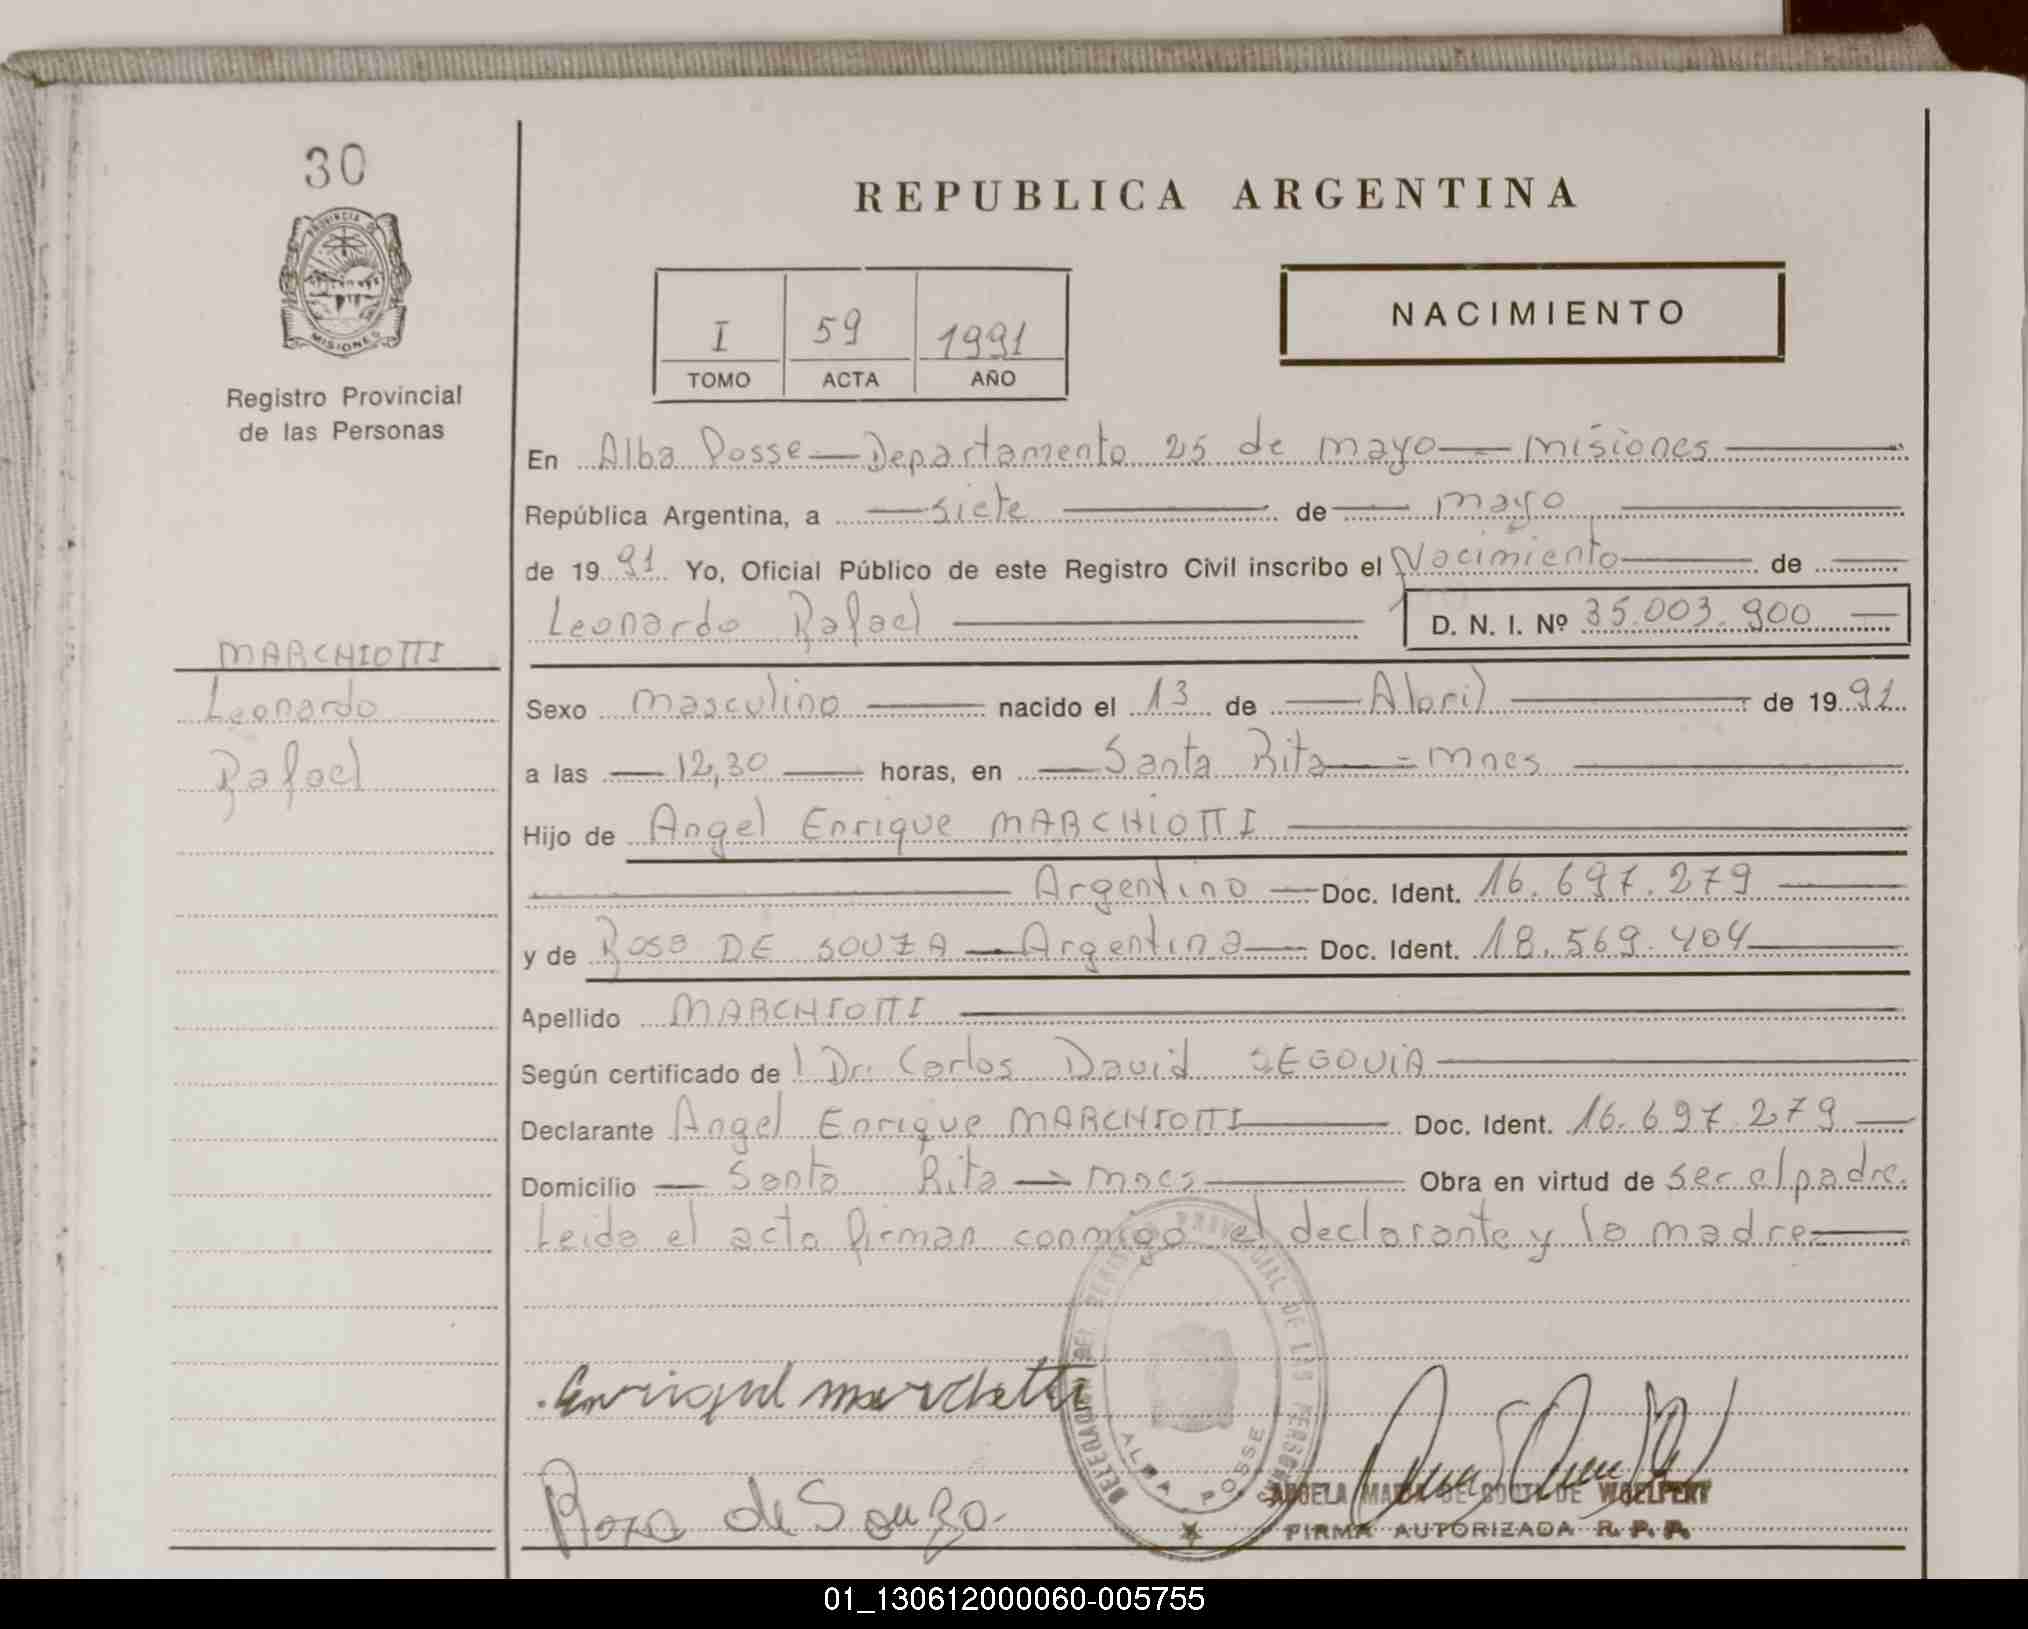 30
PROVINCIA DE
MISIONES
Registro Provincial
de las Personas
MARCHIOTTI
Leonardo
Rafael
REPUBLICA ARGENTINA
I 59 1991
TOMO ACTA AÑO
NACIMIENTO
En Alba Posse — Departamento 25 de mayo — misiones
República Argentina, a — siete — de — mayo
de 1991 Yo, Oficial Público de este Registro Civil inscribo el Nacimiento — de —
Leonardo Rafael — D. N. I. Nº 35.003.900 —
Sexo masculino — nacido el 13 de — Abril — de 1991
a las — 12,30 — horas, en — Santa Rita — = mnes —
Hijo de Angel Enrique MARCHIOTTI —
— Argentino — Doc. Ident. 16.697.279 —
y de Rosa DE SOUZA — Argentina — Doc. Ident. 18.569.404 —
Apellido MARCHIOTTI —
Según certificado del Dr. Carlos David SEGOVIA —
Declarante Angel Enrique MARCHIOTTI — Doc. Ident. 16.697.279 —
Domicilio — Santa Rita — mnes — Obra en virtud de ser el padre.
Leida el acta firman conmigo el declarante y la madre —
DELEGACION DEL REGISTRO PROVINCIAL DE LAS PERSONAS
ALBA POSSE
Enrique
Rosa de Souza.
ANGELA MARIA DE WOELPERT
FIRMA AUTORIZADA R. P. P.
01_130612000060-005755